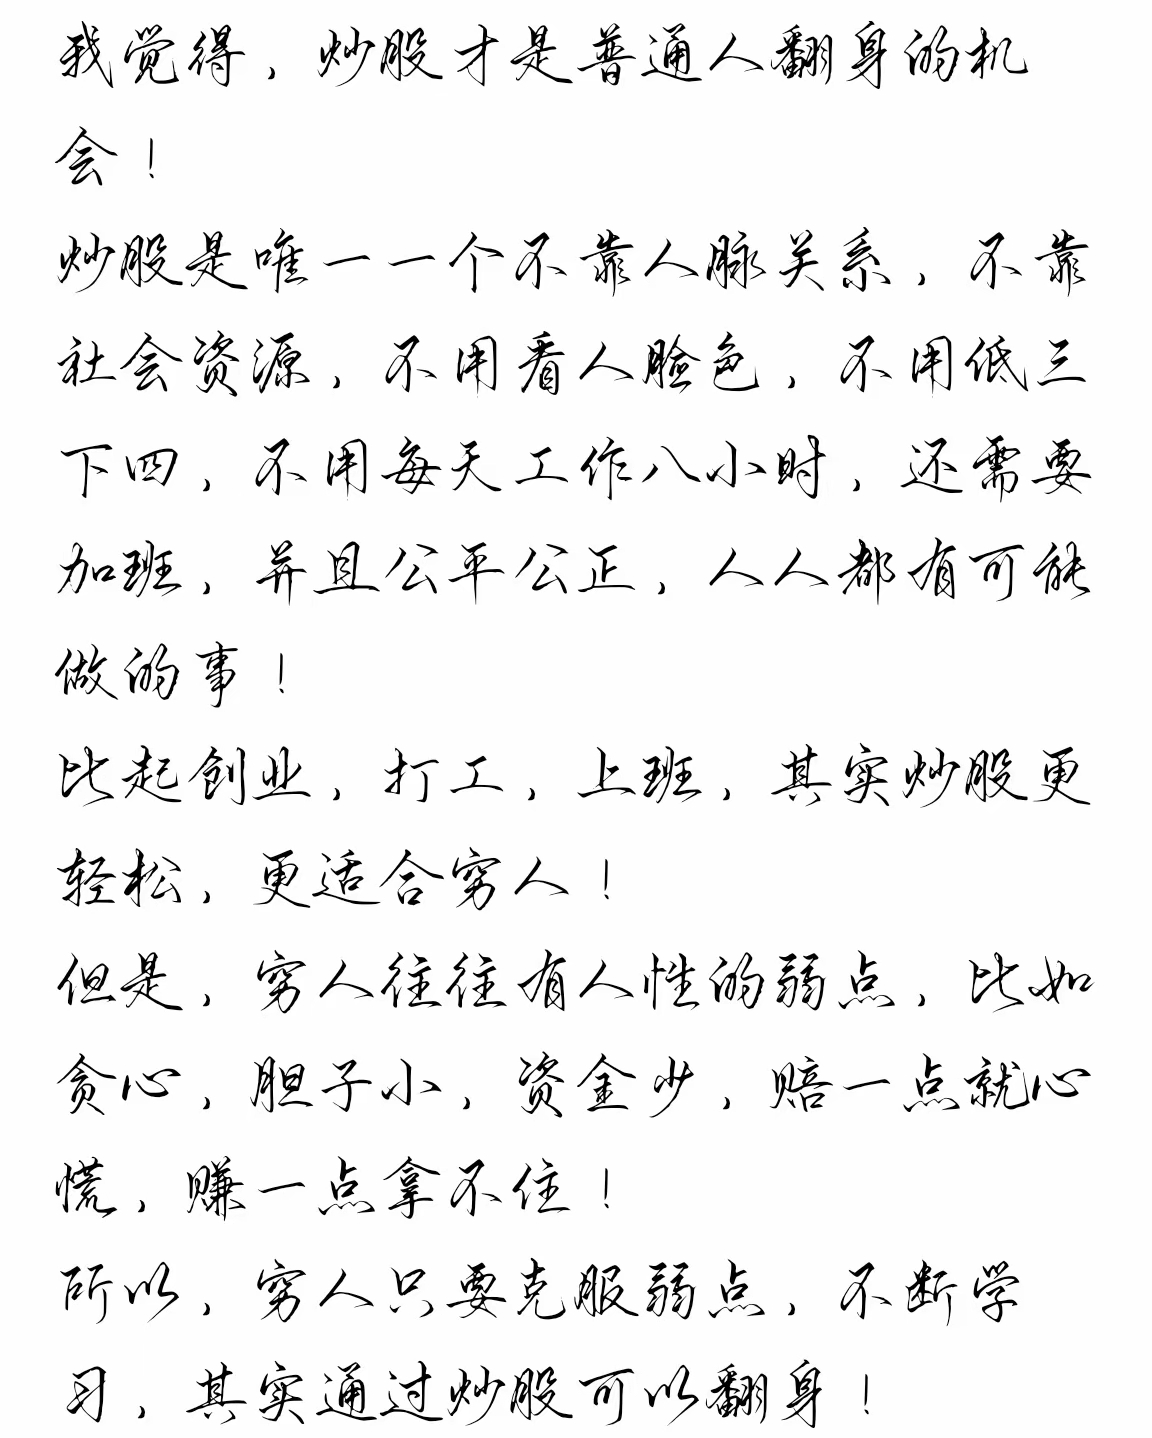 我觉得，炒股才是普通人翻身的机
会！
炒股是唯一一个不靠人脉关系，不靠
社会资源，不用看人脸色，不用低三
下四，不用每天工作八小时，还需要
加班，并且公平公正，人人都有可能
做的事！
比起创业，打工，上班，其实炒股更
轻松，更适合穷人！
但是，穷人往往有人性的弱点，比如
贪心，胆子小，资金少，赔一点就心
慌，赚一点拿不住！
所以，穷人只要克服弱点，不断学
习，其实通过炒股可以翻身！